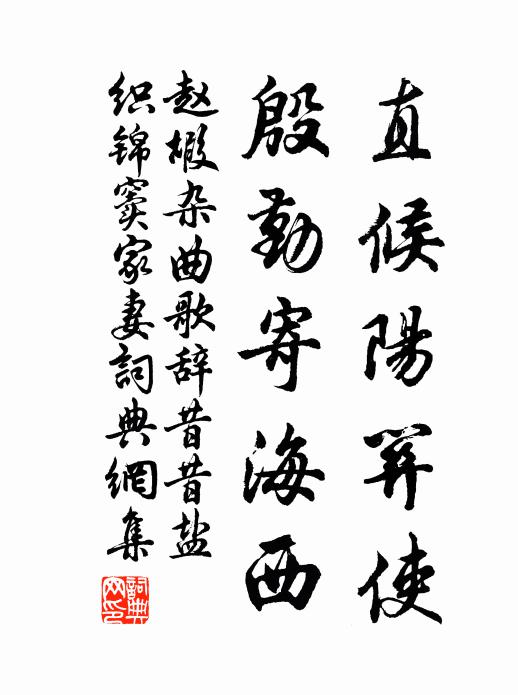 直候陽關使
殷勤寄海西
赵嘏杂曲歌辞昔昔盐
织锦窦家妻詞典網集
詞典网印